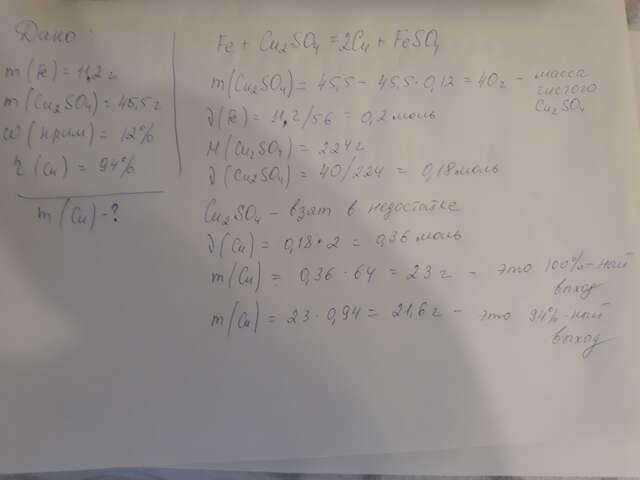 Дано:
m(Fe) = 11,2 г
m(Cu2SO4) = 45,5 г
ω(прим) = 12%
η(Cu) = 94%
m(Cu) - ?
Fe + Cu2SO4 = 2Cu + FeSO4
m(Cu2SO4) = 45,5 - 45,5·0,12 = 40 г - масса чистого Cu2SO4
ϑ(Fe) = 11,2/56 = 0,2 моль
M(Cu2SO4) = 224 г
ϑ(Cu2SO4) = 40/224 = 0,18 моль
Cu2SO4 - взят в недостатке
ϑ(Cu) = 0,18·2 = 0,36 моль
m(Cu) = 0,36·64 = 23 г - это 100%-ный выход
m(Cu) = 23·0,94 = 21,6 г - это 94%-ный выход